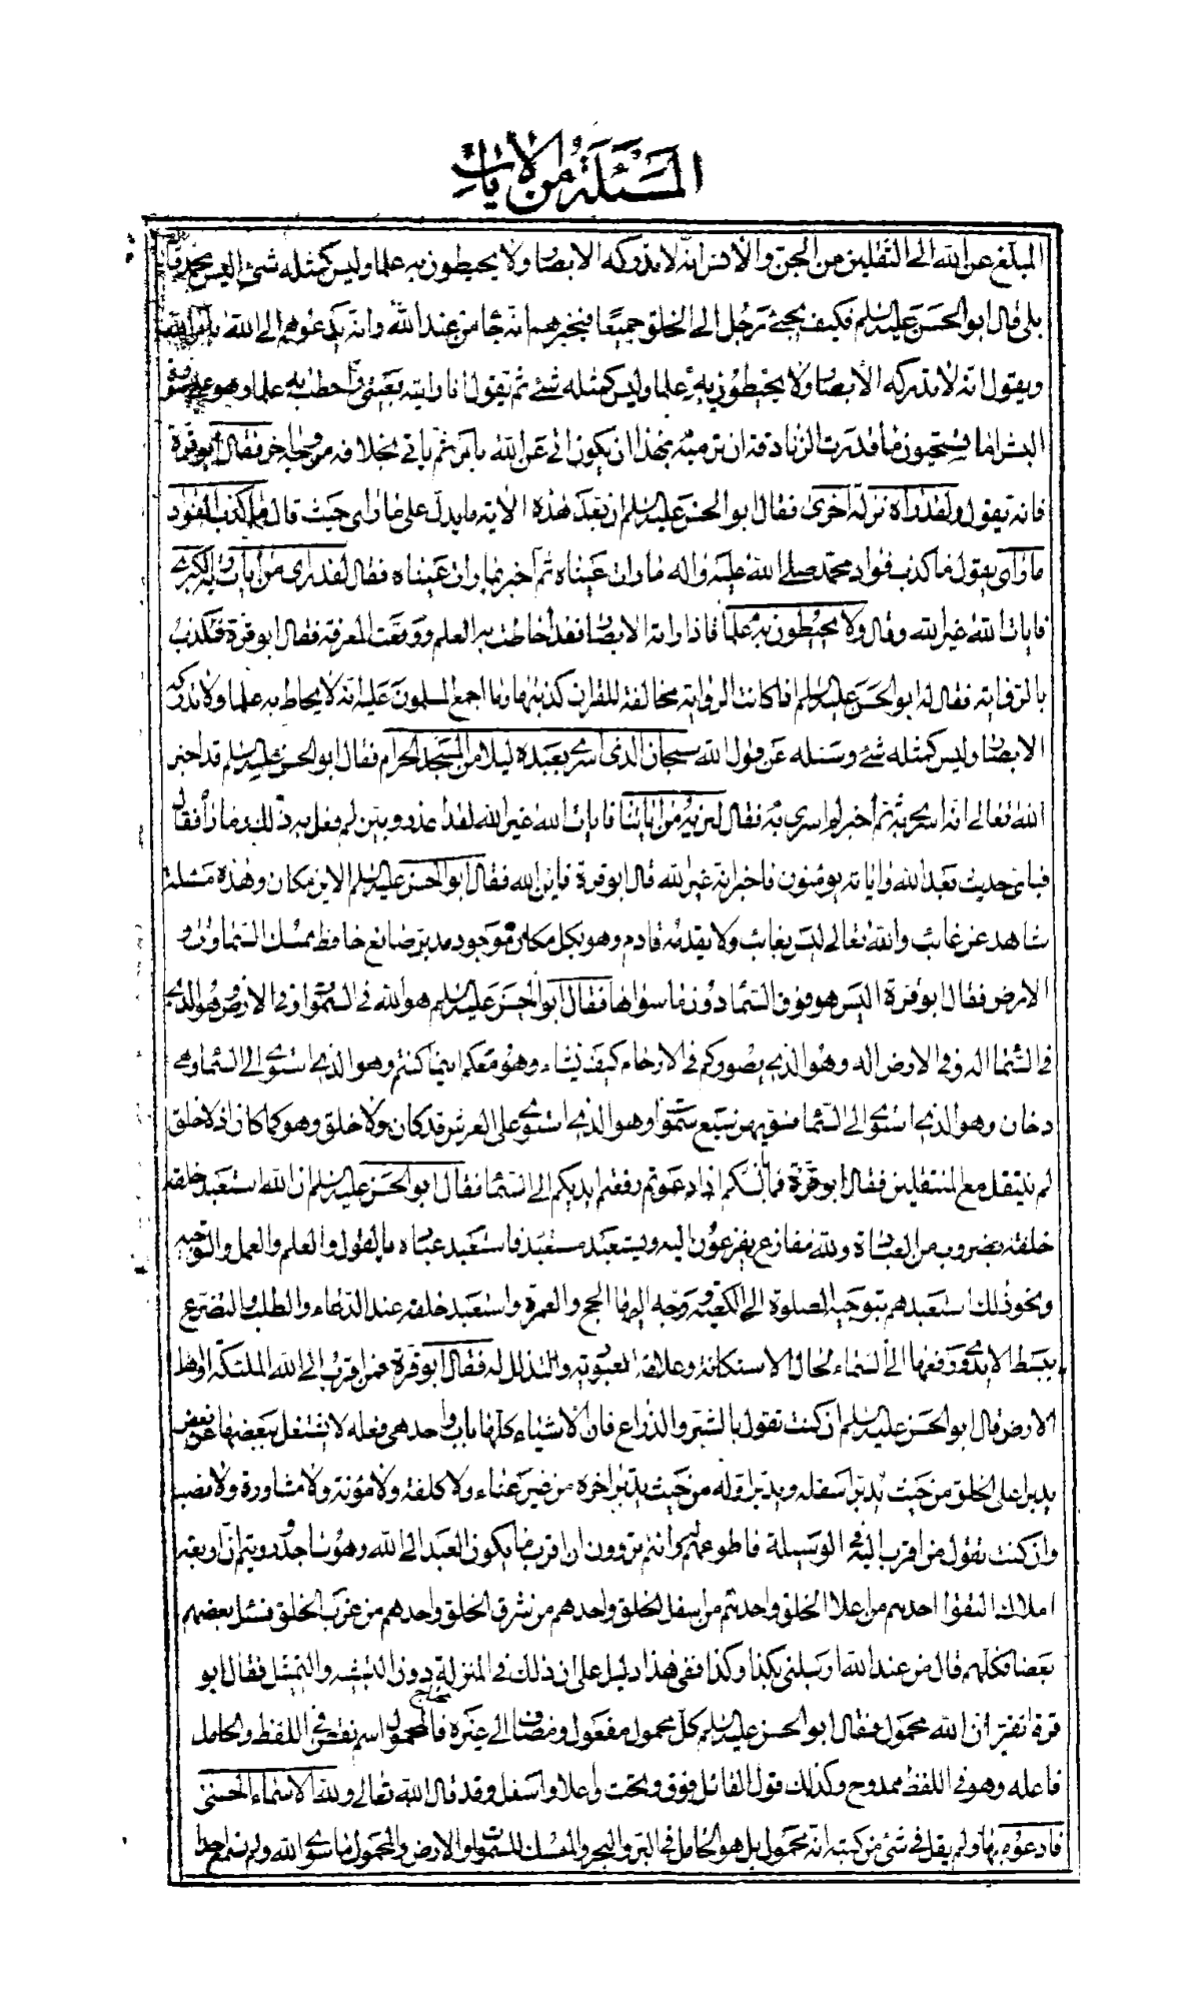 المسئلة من الايات
المبلغ عن الله الى الثقلين من الجن والانس انه لا تدركه الابصار ولا يحيطون به علما وليس كمثله شئ اليس محمد قال
بلى قال ابو الحسن عليه السلم فكيف يجئ رجل الى الخلق جميعا فيخبرهم انه جا من عند الله وانه يدعوهم الى الله بامر الله
ويقول انه لا تدركه الابصار ولا يحيطون به علما وليس كمثله شئ ثم يقول انا رايته بعينى واحطت به علما وهو على صورة
البشر اما تستحيون ما قدرت الزنادقة ان ترميه بهذا ان يكون اتى عن الله بامر ثم ياتى بخلافه من وجه اخر فقال ابو قرة
فانه يقول ولقد راه نزلة اخرى فقال ابو الحسن عليه السلم ان بعد هذه الاية ما يدل على ما راى حيث قال ما كذب الفؤاد
ما راى يقول ما كذب فؤاد محمد صلى الله عليه واله ما رات عيناه ثم اخبر بما رات عيناه فقال لقد راى من ايات ربه الكبرى
فايات الله غير الله وقال ولا يحيطون به علما فاذا راته الابصار فقد احاطت به العلم ووقعت المعرفة فقال ابو قرة فتكذب
بالرواية فقال له ابو الحسن عليه السلم اذا كانت الرواية مخالفة للقران كذبتها وما اجمع المسلمون عليه انه لا يحاط به علما ولا تدركه
الابصار وليس كمثله شئ وسئله عن قول الله سبحان الذى اسرى بعبده ليلا من المسجد الحرام فقال ابو الحسن عليه السلم قد اخبر
الله تعالى انه اسرى به ثم اخبر لم اسرى به فقال لنريه من اياتنا فايات الله غير الله لقد اعذر وبين لم فعل به ذلك وما راه فقال
فباى حديث بعد الله واياته يومنون فاخبر انه غير الله قال ابو قرة فاين الله فقال ابو الحسن عليه السلم الاين مكان وهذه مسئلة
شاهد عن غائب والله تعالى ليس بغائب ولا يقدمه قادم وهو بكل مكان موجود مدبر صانع حافظ يمسك السماوات و
الارض فقال ابو قرة اليس هو فوق السماء دون ما سواها فقال ابو الحسن عليه السلم هو الله فى السموات وفى الارض وهو الذى
فى السماء اله وفى الارض اله وهو الذى يصوركم فى الارحام كيف يشاء وهو معكم اينما كنتم وهو الذى استوى الى السماء وهى
دخان وهو الذى استوى الى السماء فسويهن سبع سموات وهو الذى استوى على العرش قد كان ولا خلق وهو كما كان اذ لا خلق
لم ينتقل مع المنتقلين فقال ابو قرة فما بالكم اذا دعوتم رفعتم ايديكم الى السماء فقال ابو الحسن عليه السلم ان الله استعبد خلقه
خلقه بضروب من العبادة ولله مفازع يفزعون اليه ويستعبد مستعبد فاستعبد عباده بالقول والعلم والعمل والتوجيه
ونحو ذلك استعبدهم بتوجيه الصلوة الى الكعبة ووجه اليها الحج والعمرة واستعبد خلقه عند الدعاء والطلب والتضرع
ببسط الايدى ورفعها الى السماء لحال الاستكانة وعلامة العبودية والتذلل له فقال ابو قرة فمن اقرب الى الله الملئكة او اهل
الارض قال ابو الحسن عليه السلم ان كنت تقول بالشبر والذراع فان الاشياء كلها باب واحد هى فعله لا يشتغل ببعضها عن بعض
يدبر اعلى الخلق من حيث يدبر اسفله ويدبر اوله من حيث يدبر اخره من غير عناء ولا كلفة ولا مؤنة ولا مشاورة ولا نصب
وان كنت تقول من اقرب اليه فى الوسيلة فاطوعهم وانتم تروون ان اقرب ما يكون العبد الى الله وهو ساجد ورويتم ان اربعة
املاك التقوا احدهم من اعلا الخلق واحدهم من اسفل الخلق واحدهم من شرق الخلق واحدهم من غرب الخلق فسئل بعضهم
بعضا فكلهم قال من عند الله ارسلنى بكذا وكذا ففى هذا دليل على ان ذلك فى المنزلة دون التشبيه والتمثيل فقال ابو
قرة اتقر ان الله محمول فقال ابو الحسن عليه السلم كل محمول مفعول ومضاف الى غيره محتاج فالمحمول اسم نقص فى اللفظ والحامل
فاعله وهو فى اللفظ ممدوح وكذلك قول القائل فوق وتحت واعلا واسفل وقد قال الله تعالى ولله الاسماء الحسنى
فادعوه بها ولم يقل فى شئ من كتبه انه محمول بل هو الحامل فى البر والبحر والممسك للسموات والارض والمحمول ما سوى الله ولم نسمع احدا